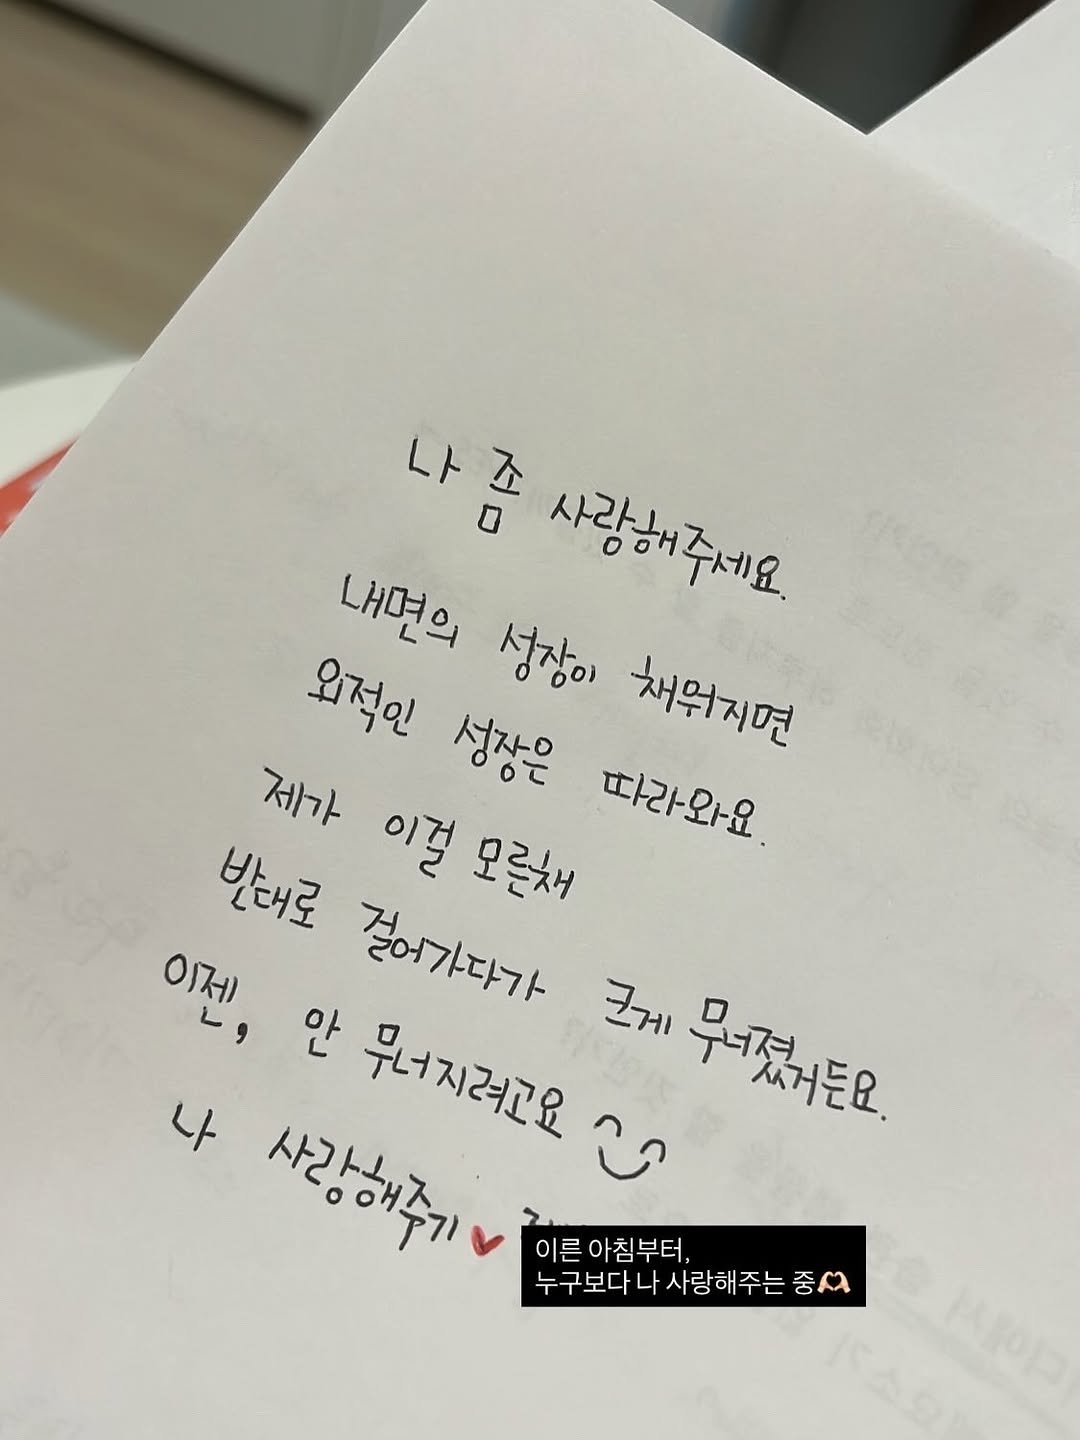 나 좀 사랑해주세요.
내면의 성장이 채워지면
외적인 성장은 따라와요.
제가 이걸 모른채
반대로 걸어가다가 크게 무너졌거든요.
이젠, 안 무너지려고요
나 사랑해주기
이른 아침부터,
누구보다 나 사랑해주는 중🫶🏻